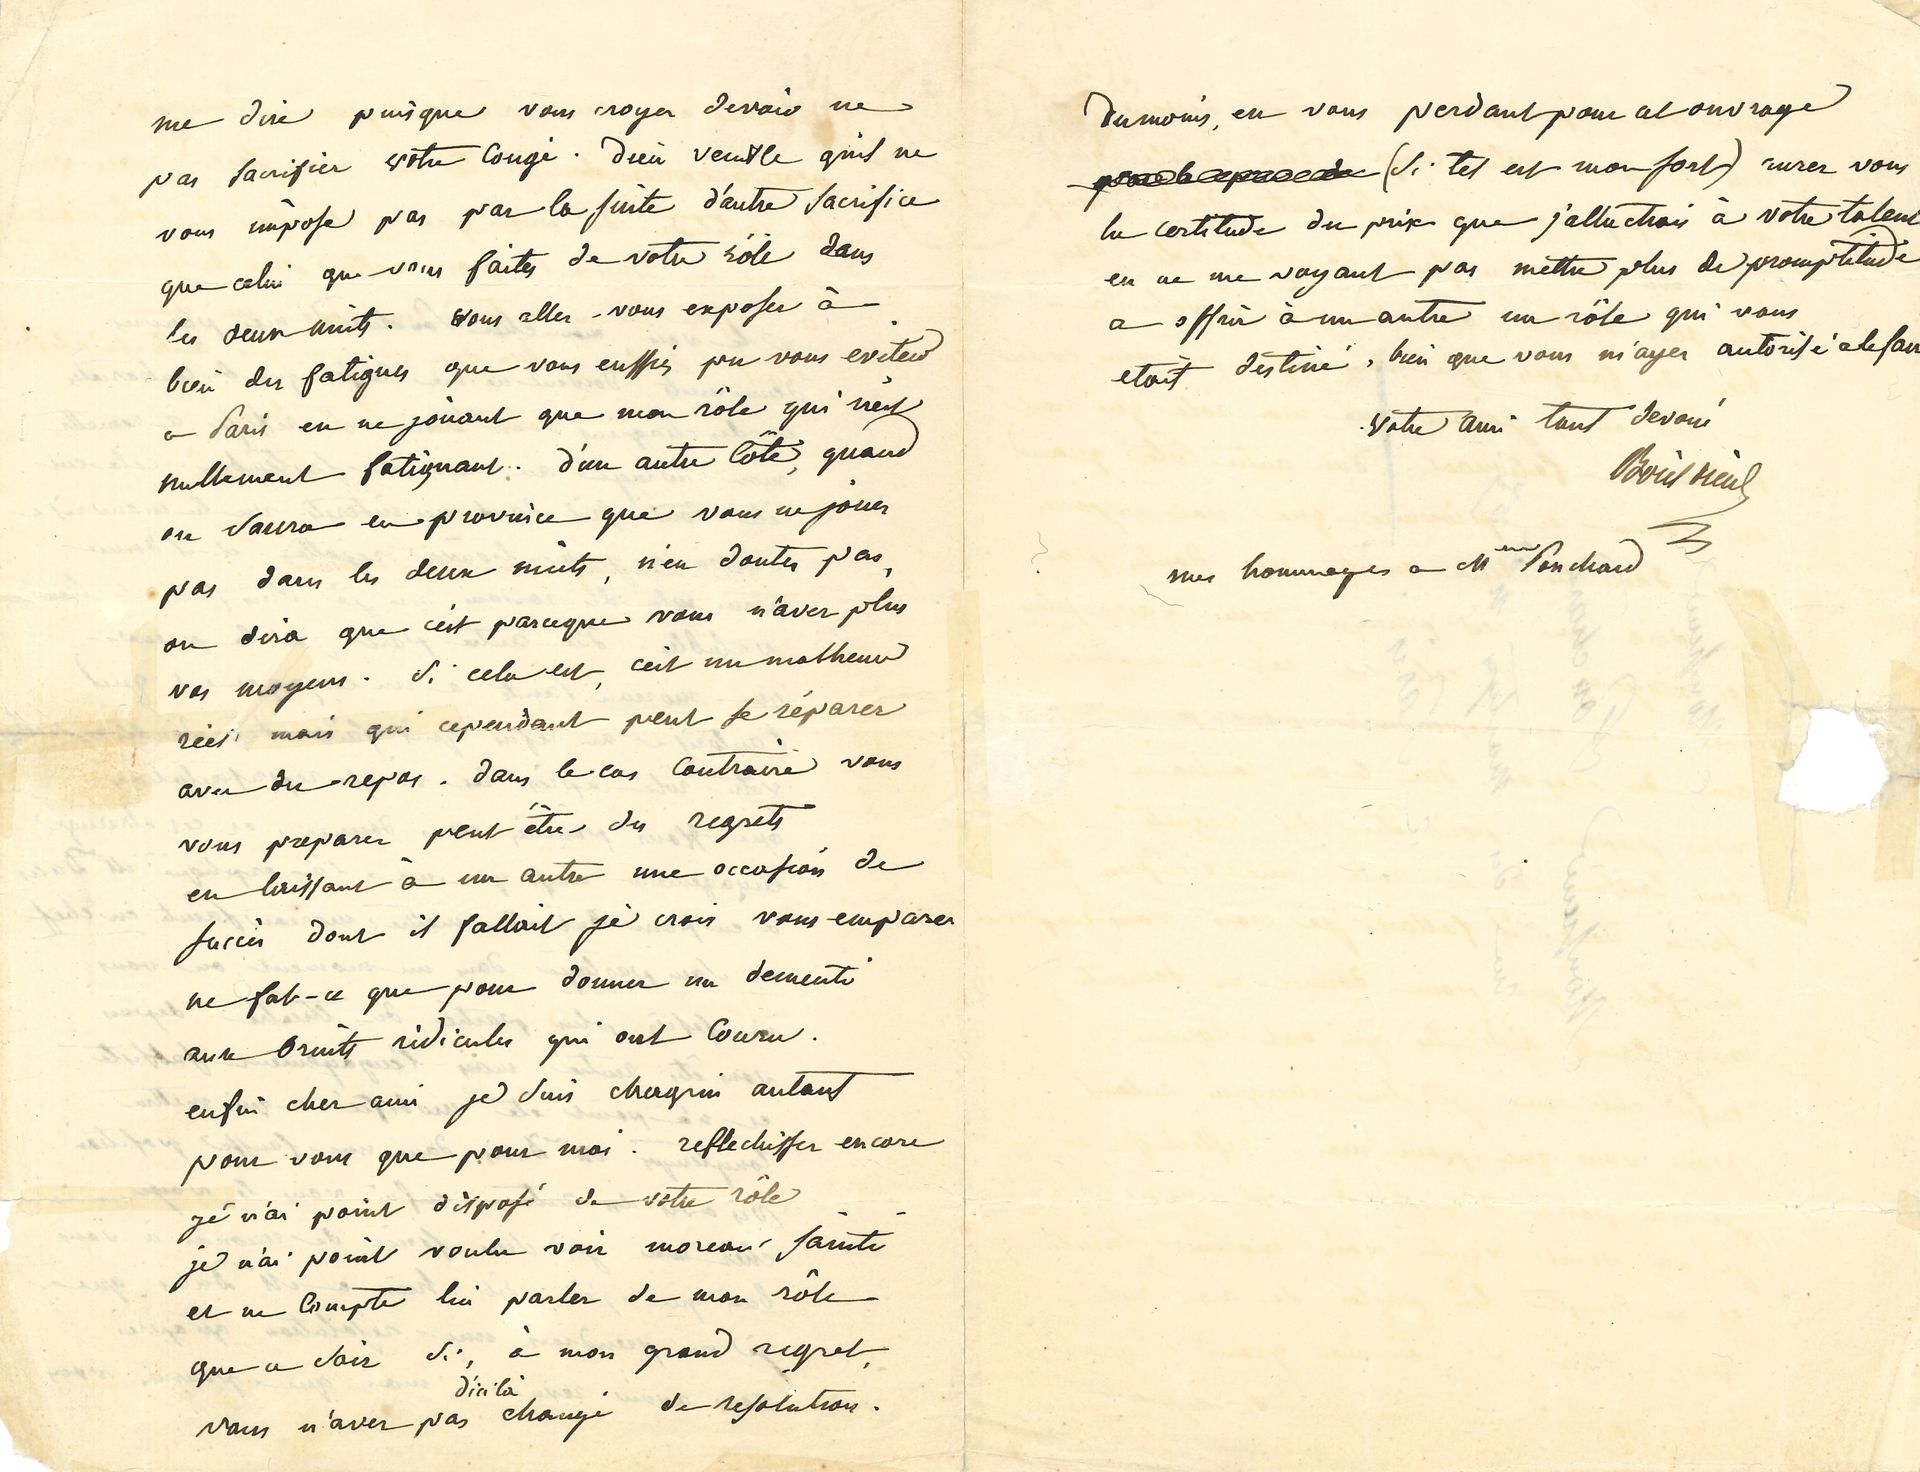 me dire puisque vous croyez devoir ne
pas sacrifier votre congé. Dieu veuille qu'il ne
vous impose pas par la suite d'autre sacrifice
que celui que vous faites de votre rôle dans
les deux nuits. vous allez vous exposer à
bien des fatigues que vous eussiez pu vous eviter
a Paris en ne jouant que mon rôle qui n'est
nullement fatiguant. d'un autre côté, quand
on saura en province que vous ne jouez
pas dans les deux nuits, n'en doutez pas,
on dira que c'est parceque vous n'avez plus
vos moyens. Si cela est, c'est un malheur
réel mais qui cependant peut se réparer
avec du repos. dans le cas contraire vous
vous preparez peut être des regrets
en laissant à un autre une occasion de
succès dont il fallait je crois vous emparer
ne fut-ce que pour donner un dementi
aux bruits ridicules qui ont couru.
enfin cher ami je suis chagrin autant
pour vous que pour moi. reflechissez encore
je n'ai point disposé de votre rôle
je n'ai point voulu voir moreau sainti
et ne compte lui parler de mon rôle
que ce soir si, à mon grand regret,
d'ici là
vous n'avez pas changé de resolution.
Dumoins, en vous perdant pour cet ouvrage
(si tel est mon sort) aurez vous
la certitude du prix que j'attachais à votre talent
en ne me voyant pas mettre plus de promptitude
a offrir à un autre un rôle qui vous
etait destiné, bien que vous m'ayez autorisé a le faire
votre ami tout devoué
Boieldieu
mes hommages a Mme Ponchard